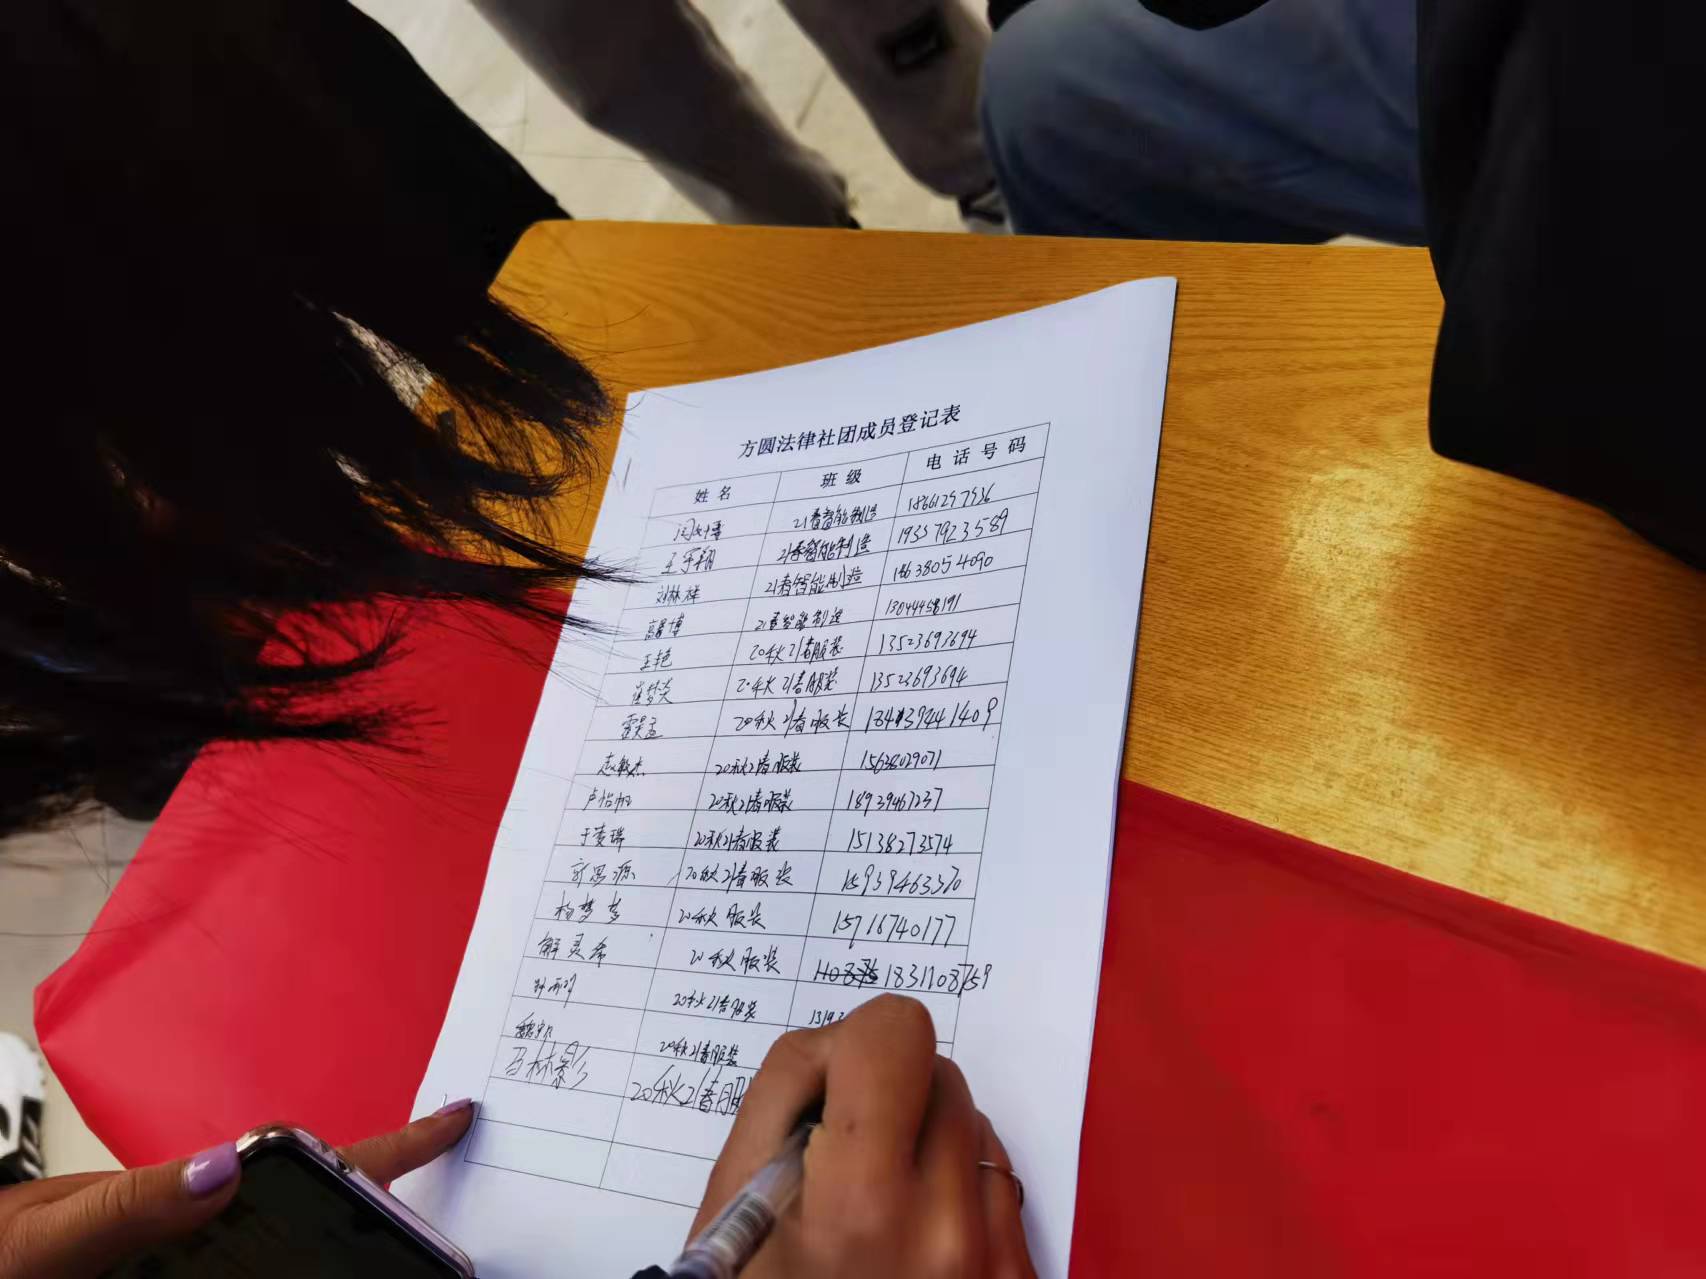 方圆法律社团成员登记表
姓名 班级 电话号码
闫 博 21春智能制造 18661297936
王宇翔 21春智能制造 19337923589
刘林祥 21春智能制造 18638054090
高 博 21春智能制造 13044458191
王艳 20秋21春服装 13523693694
崔梦炎 20秋21春服装 13523693694
雷昊孟 20秋21春服装 184139441409
赵敏杰 20秋21春服装 15638029071
卢怡帆 20秋21春服装 18939467237
于雯瑞 20秋21春服装 15138273574
靳思源 20秋21春服装 15939463370
杨梦梦 20秋服装 15716740177
解灵希 20秋服装 18311087159
20秋21春服装 1319
魏 20秋21春服装
马林影 20秋21春服